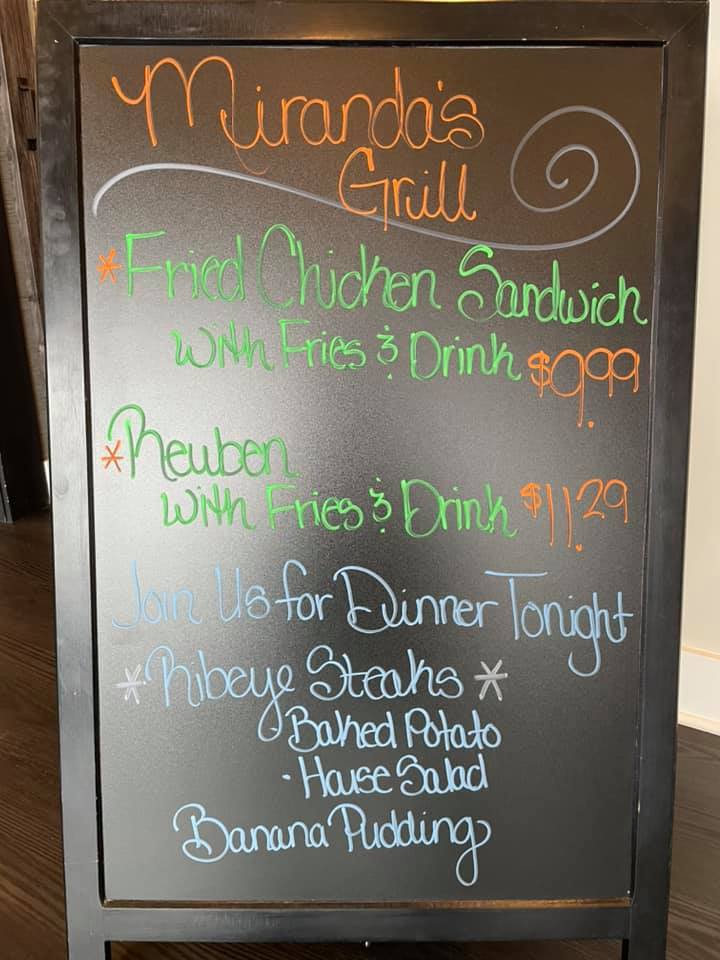 Miranda's
Grill
*Fried Chicken Sandwich
with Fries & Drink $9.99
*Reuben
with Fries & Drink $11.29
Join Us for Dinner Tonight
*Ribeye Steaks*
·Baked Potato
·House Salad
Banana Pudding